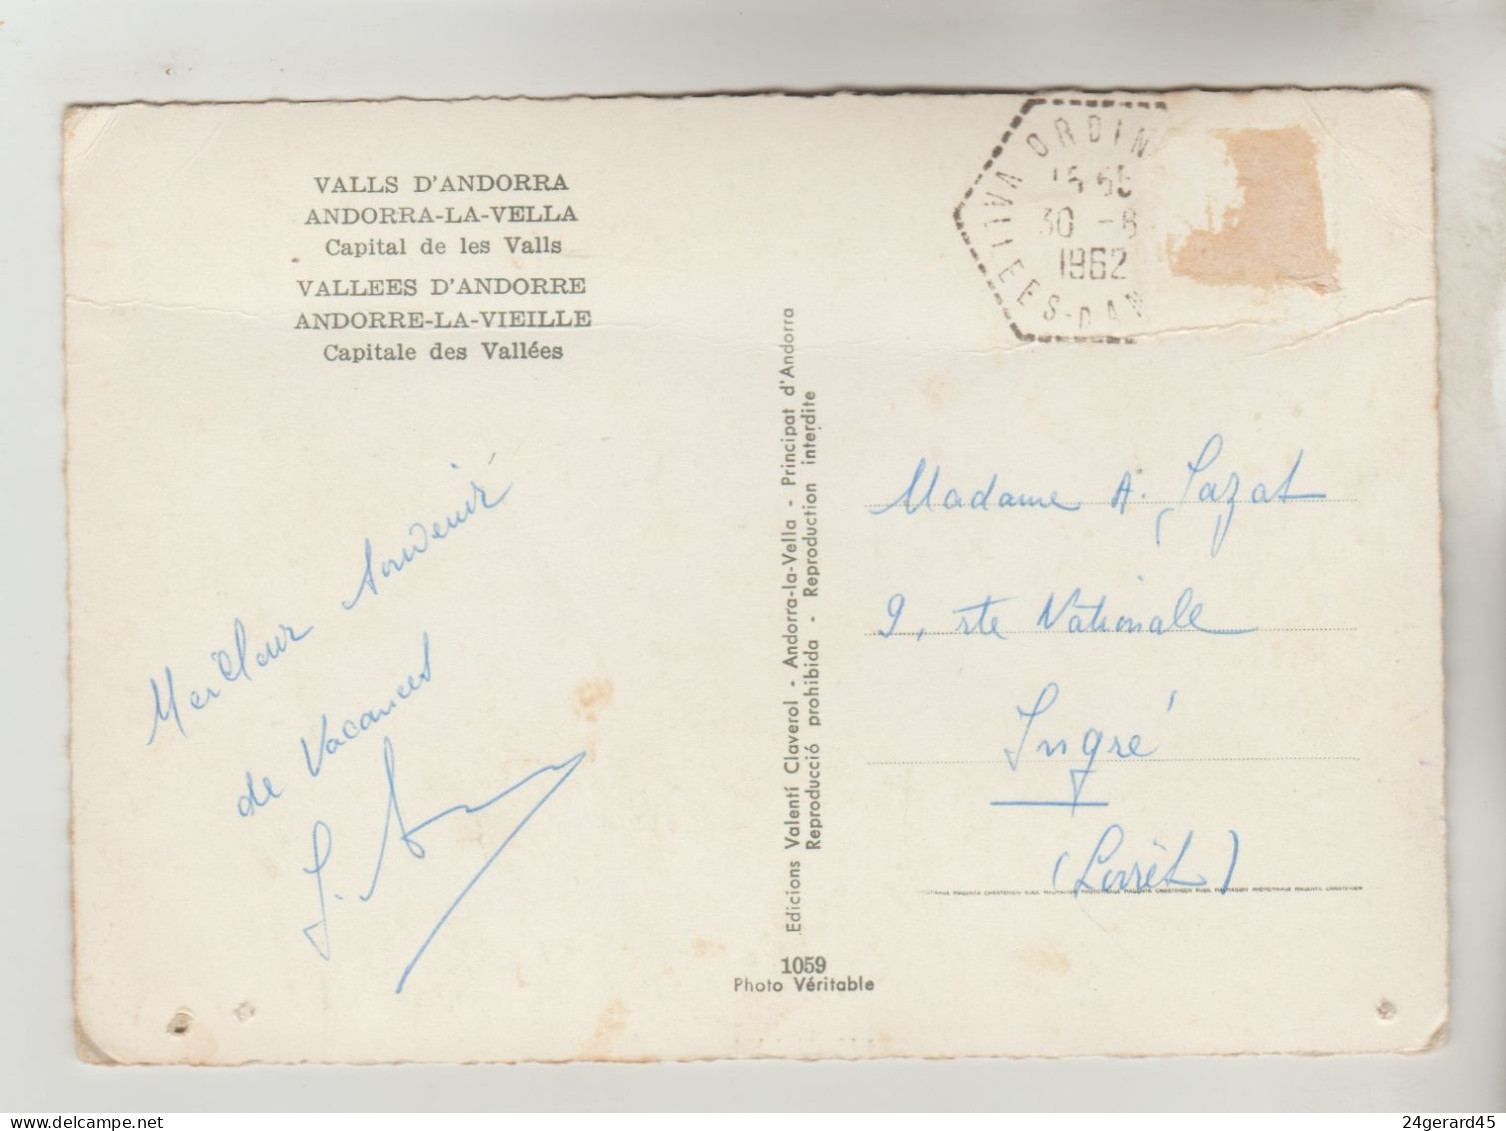 VALLS D'ANDORRA
ANDORRA-LA-VELLA
Capital de les Valls
VALLEES D'ANDORRE
ANDORRE-LA-VIEILLE
Capitale des Vallées
Meilleur souvenir
de Vacances
Edicions Valentí Claverol - Andorra-la-Vella - Principat d'Andorra
Reproducció prohibida - Reproduction interdite
1059
Photo Véritable
ORDIN
30 -8
1962
VALLEES-D'AN
Madame A. Jazat
9, rte Nationale
Ingré
(Loirèt)
24gerard45